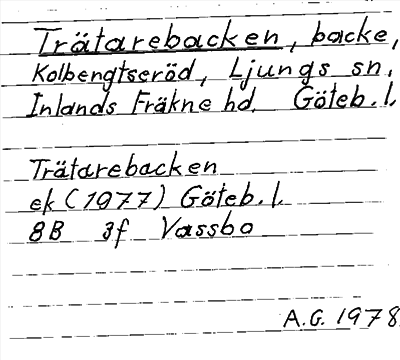 Trätarebacken, backe,
Kolbengtseröd, Ljungs sn,
Inlands Fräkne hd. Göteb. l.
Trätarebacken
ek (1977) Göteb. l.
8B 3f Vassbo
A.G. 1978